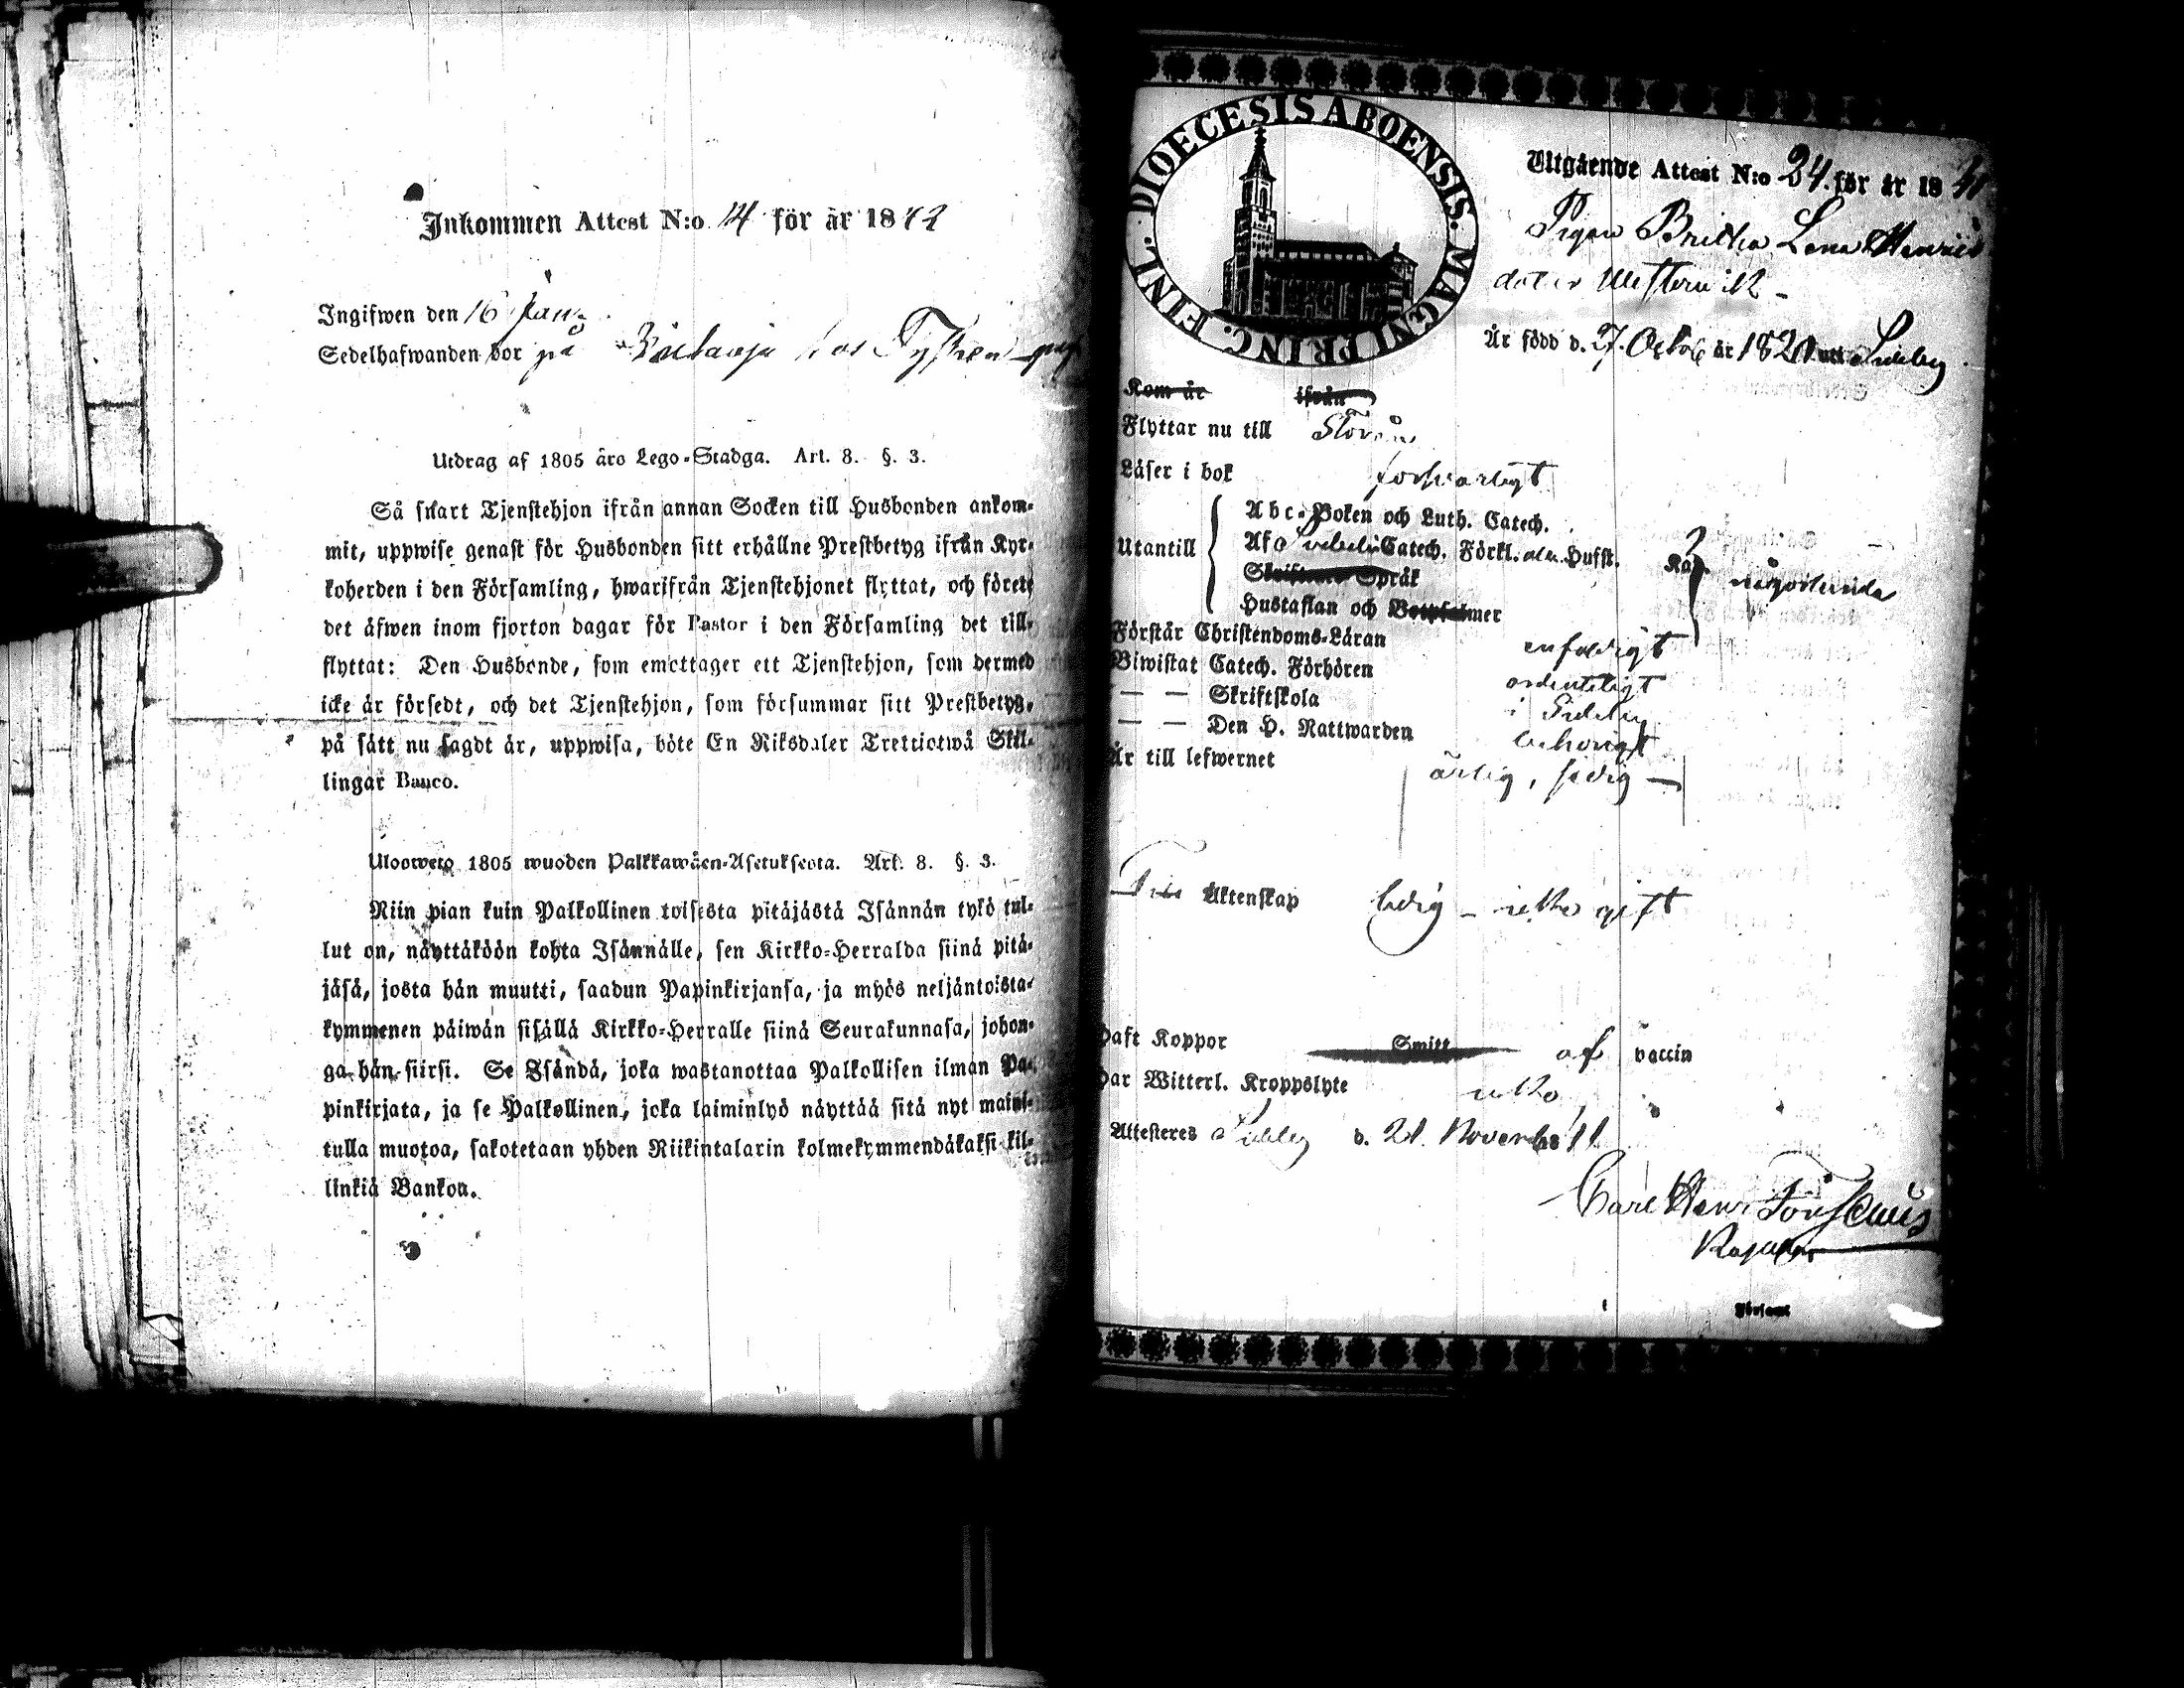 Inkommen Attest N:o 14 för år 1842
Ingifwen den 16 Jan.
Sedelhafwanden bor på hos
Utdrag af 1805 års Lego-Stadga. Art. 8. §. 3.
Så snart Tjenstehjon ifrån annan Socken till Husbonden ankom-
mit, uppwise genast för Husbonden sitt erhållne Prestbetyg ifrån Kyr-
koherden i den Församling, hwarifrån Tjenstehjonet flyttat, och förete
det äfwen inom fjorton dagar för Pastor i den Församling det till-
flyttat: Den Husbonde, som emottager ett Tjenstehjon, som dermed
icke är försedt, och det Tjenstehjon, som försummar sitt Prestbetyg,
på sätt nu sagdt är, uppwisa, böte En Riksdaler Trettiotwå Skil-
lingar Banco.
Ulosweto 1805 wuoden Palkkawäen-Asetuksesta. Art. 8. §. 3.
Niin pian kuin Palkollinen toisesta pitäjästä Isännän tykö tul-
lut on, näyttäköön kohta Isännälle, sen Kirkko-Herralda siinä pitä-
jäsä, josta hän muutti, saadun Papinkirjansa, ja myös neljäntoista-
kymmenen päiwän sisällä Kirkko-Herralle siinä Seurakunnasa, johon-
ga hän siirsi. Se Isändä, joka wastanottaa Palkollisen ilman Pa-
pinkirjata, ja se Palkollinen, joka laiminlyö näyttää sitä nyt maini-
tulla muotoa, sakotetaan yhden Riikintalarin kolmekymmendäkaksi kil-
linkiä Bankoa.
DIOECESIS ABOENSIS. MAGNI PRINC. FINL.
Utgående Attest N:o 24. för år 1841
Pigan Britha Lena Henrics
dotter Westervik
Är född d. 27. Octob. år 182 uti Sideby
Kom år ifrån
Flyttar nu till
Läser i bok försvarligt
Utantill
Abc-Boken och Luth. Catech.
Af Catech. Förkl. Husst. Kap. någorlunda
Skriftenes Språk
Hustaflan och Botpsalmer
Förstår Christendoms-Läran enfaldigt
Biwistat Catech. Förhören ordenteligt
— — Skriftskola i Sideby
— — Den H. Nattwarden behörigt
Är till lefwernet ärlig, sedig —
Till Äktenskap ledig – icke gift
Haft Koppor Smitt af vaccin
Har Witterl. Kroppslyte icke
Attesteres Sideby d. 21. November 41
Carl Henr.